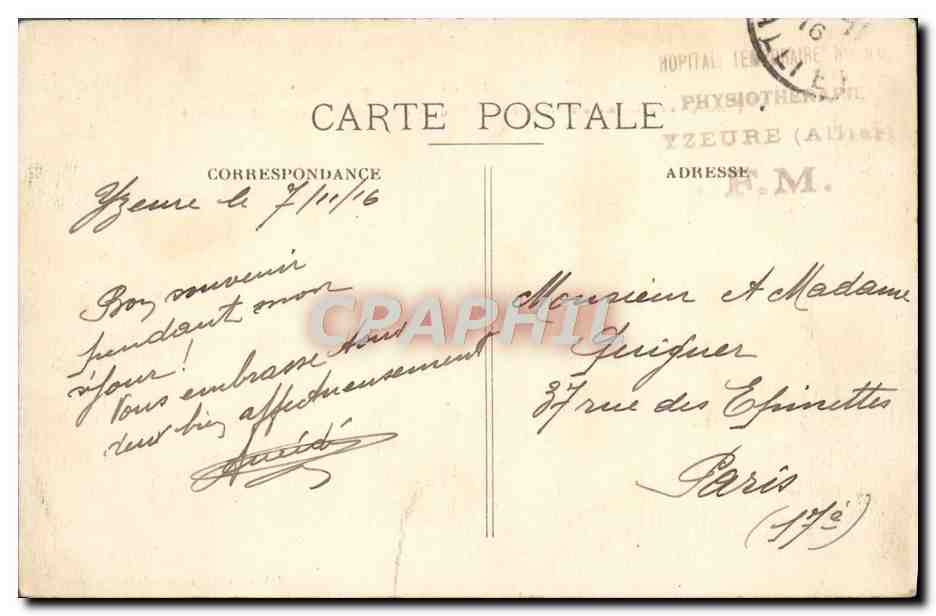 16
HOPITAL TEMPORAIRE
PHYSIOTHERAPIE
YZEURE (Allier)
F.M.
CARTE POSTALE
CORRESPONDANCE
ADRESSE
Yzeure le 7/11/16
Bon souvenir
pendant mon
séjour !
Vous embrasse tous
deux bien affectueusement
Monsieur & Madame
Guiguer
37 rue des Epinettes
Paris
(17è)
CPAPHIL